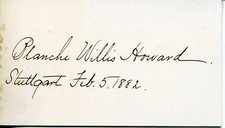 Blanche Willis Howard.
Stuttgart Feb. 5. 1882.